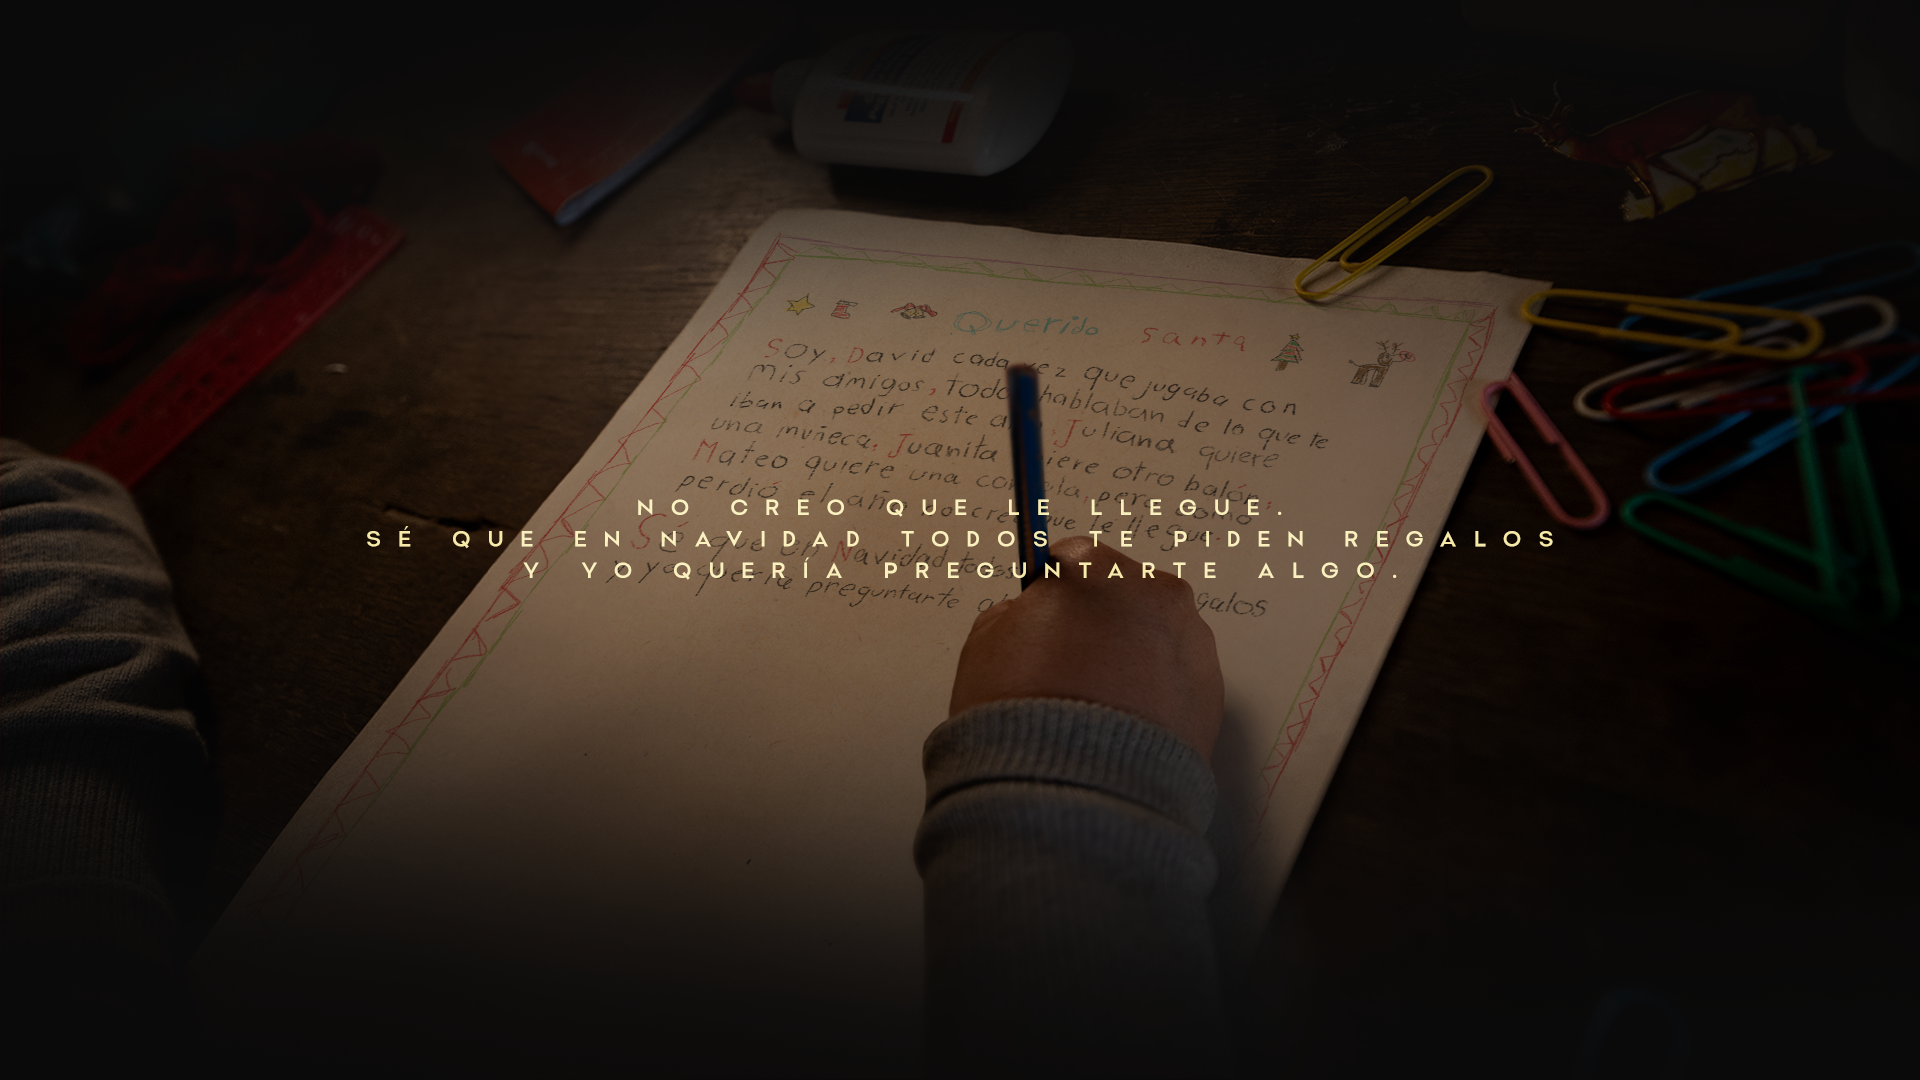 Querido Santa
Soy, David cada vez que jugaba con
mis amigos, todos hablaban de lo que te
iban a pedir este , Juliana quiere
una muñeca, Juanita quiere otro balón,
Mateo quiere una consola, pero como
perdió el año, no creo que le llegue.
Sé que en Navidad todos galos
y yo quería preguntarte
NO CREO QUE LE LLEGUE.
SÉ QUE EN NAVIDAD TODOS TE PIDEN REGALOS
Y YO QUERÍA PREGUNTARTE ALGO.